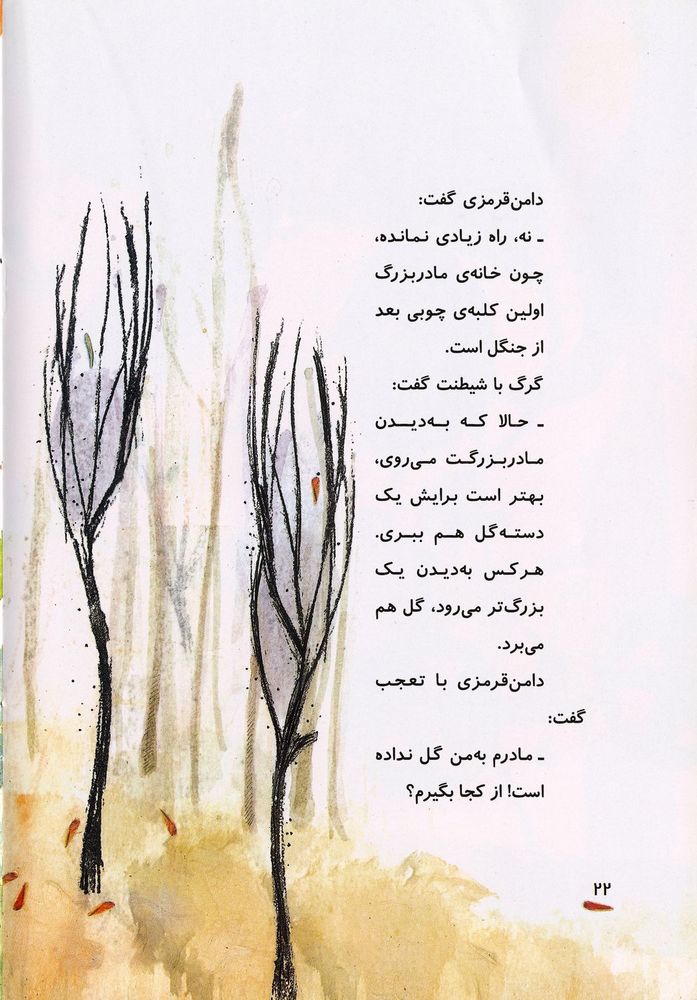 دامن‌قرمزی گفت:
ـ نه، راه زیادی نمانده،
چون خانه‌ی مادربزرگ
اولین کلبه‌ی چوبی بعد
از جنگل است.
گرگ با شیطنت گفت:
ـ حالا که به‌دیدن
مادربزرگت می‌روی،
بهتر است برایش یک
دسته‌گل هم ببری.
هرکس به‌دیدن یک
بزرگ‌تر می‌رود، گل هم
می‌برد.
دامن‌قرمزی با تعجب
گفت:
ـ مادرم به‌من گل نداده
است! از کجا بگیرم؟
۲۲